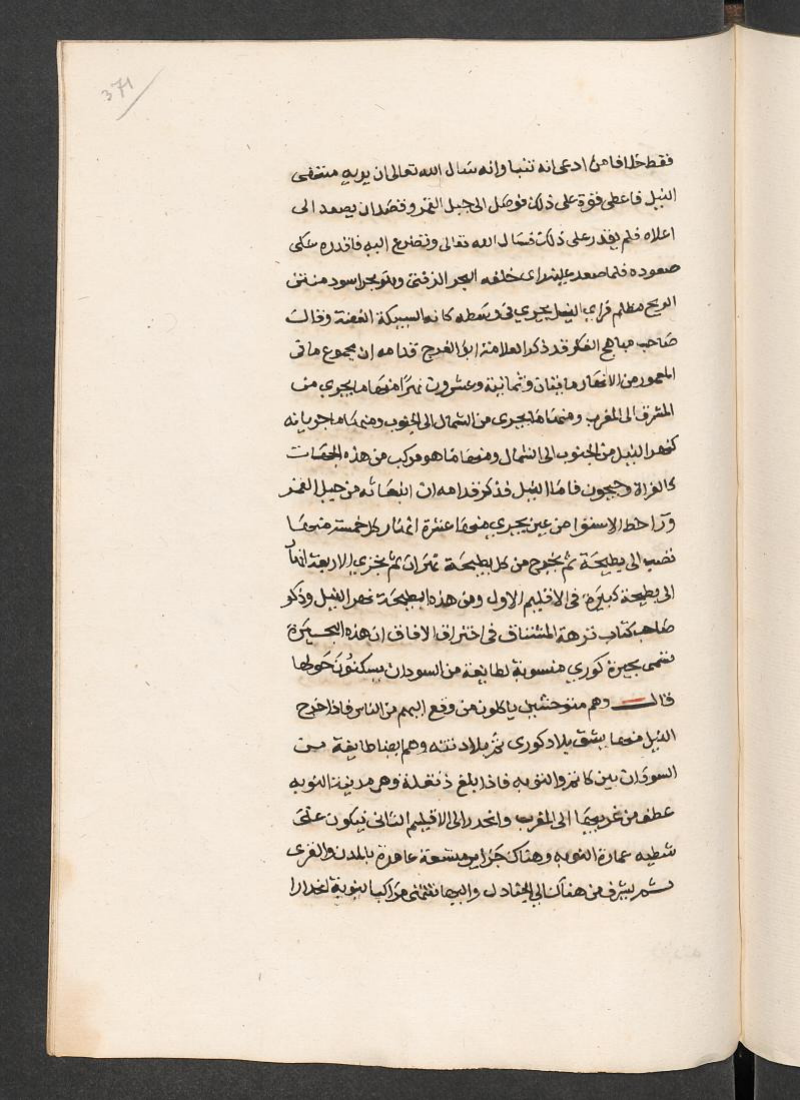 371
فقط خلافا من ادعى انه تنبا وانه سال الله تعالى ان يريه منتهى
النيل فاعطى قوة على ذلك فوصل الى جبل القمر وقصد ان يصعد الى
اعلاه فلم يقدر على ذلك فسال الله تعالى وتضرع اليه فاقدره على
صعوده فلما صعد عليه راى خلفه البحر الزفتى وهو بحر اسود منتن
الريح مظلم فراى النيل يجرى فى وسطه كانه السبيكة الفضة وقال
صاحب مباهج الفكر قد ذكر العلامة ابو الفرج قدامه ان مجموع ما فى
المعمور من الانهار مايتان وثمانية وعشرون نهرا منها ما يجرى من
المشرق الى المغرب ومنها ما يجرى من الشمال الى الجنوب ومنها ما جريانه
كنهر النيل من الجنوب الى الشمال ومنها ما هو مركب من هذه الجهات
كالفراة وجيحون فاما النيل فذكر قدامه ان انبعاثه من جبل القمر
ورا خط الاستوا من عين يجرى منها عشرة انهار كل خمسة منها
تصب الى بطيحة ثم يخرج من كل بطيحة نهران ثم يجرى الاربعة انهار
الى بطيحة كبيرة فى الاقليم الاول ومن هذه البطيحة نهر النيل وذكر
صاحب كتاب نزهة المشتاق فى اختراق الافاق ان هذه البحيرة
تسمى بحيرة كورى منسوبة لطايفة من السودان يسكنون حولها
قال وهم متوحشين ياكلون من وقع اليهم من الناس فاذا خرج
النيل منها يشق بلاد كورى ثم بلاد ننه وهم ايضا طايفة من
السودان بين كانم والنوبه فاذا بلغ دنقلة وهى مدينة النوبه
عطف من غربيها الى المغرب وانحدر الى الاقليم الثانى فيكون على
شطيه عمارة النوبه وهناك جزاير متسعة عامرة بالمدن والقرى
ثم يشرف من هناك الى الجنادل واليها تنتهى مراكب النوبة انحدارا